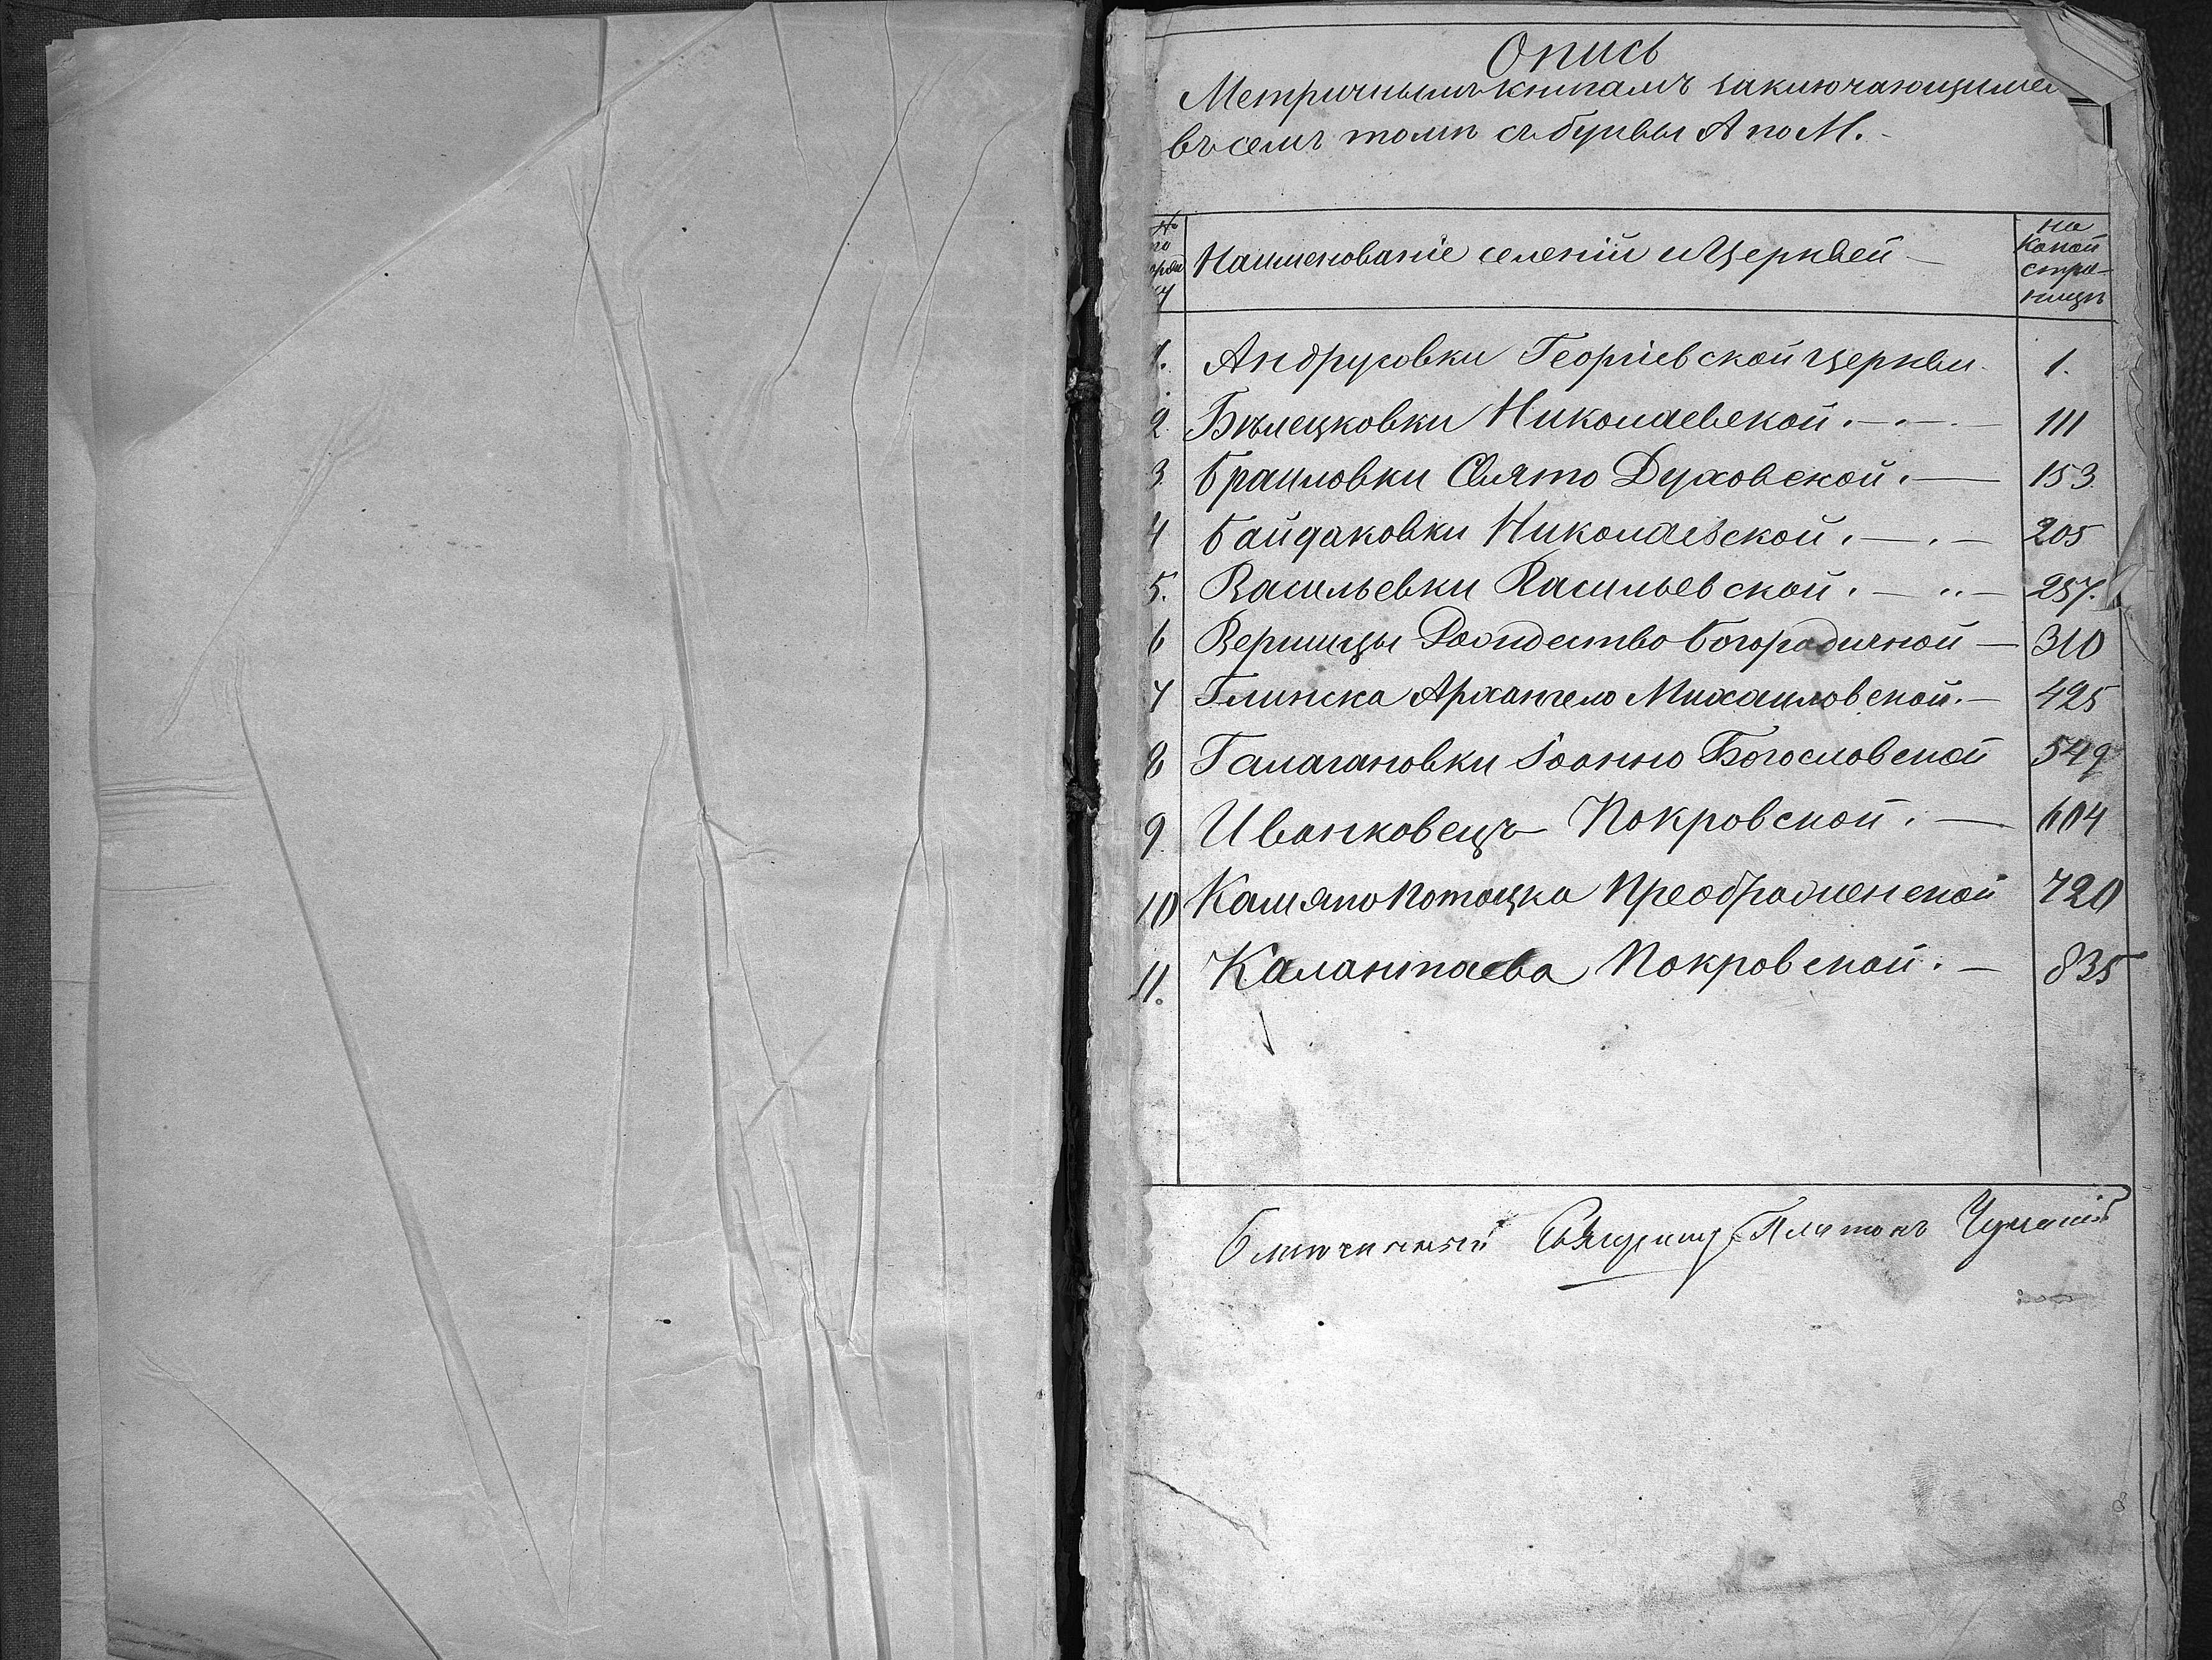 Опись
Метричнымъ книгамъ заключающимся
въ семъ томѣ съ буквы А по М.
№ по поряд ку
Наименованіе селеній и Церквей
на какой стра- ницѣ
1. Андрусовки Георгіевской церкви. 1.
2. Бѣлецковки Николаевской. 111
3. Браиловки Свято Духовской. 153
4 Байдаковки Николаевской. 205
5. Васильевки Васильевской. 257.
6 Вершицы Рождество Богородичной 310
7 Глинска Архангело Михаиловской. 425
8 Галагановки Іоанно Богословской 549
9 Иванковецъ Покровской. 604
10 Камяно Потоцка Преображенской 720
11. Калантаева Покровской. 835
Благочинный Священник Платонъ